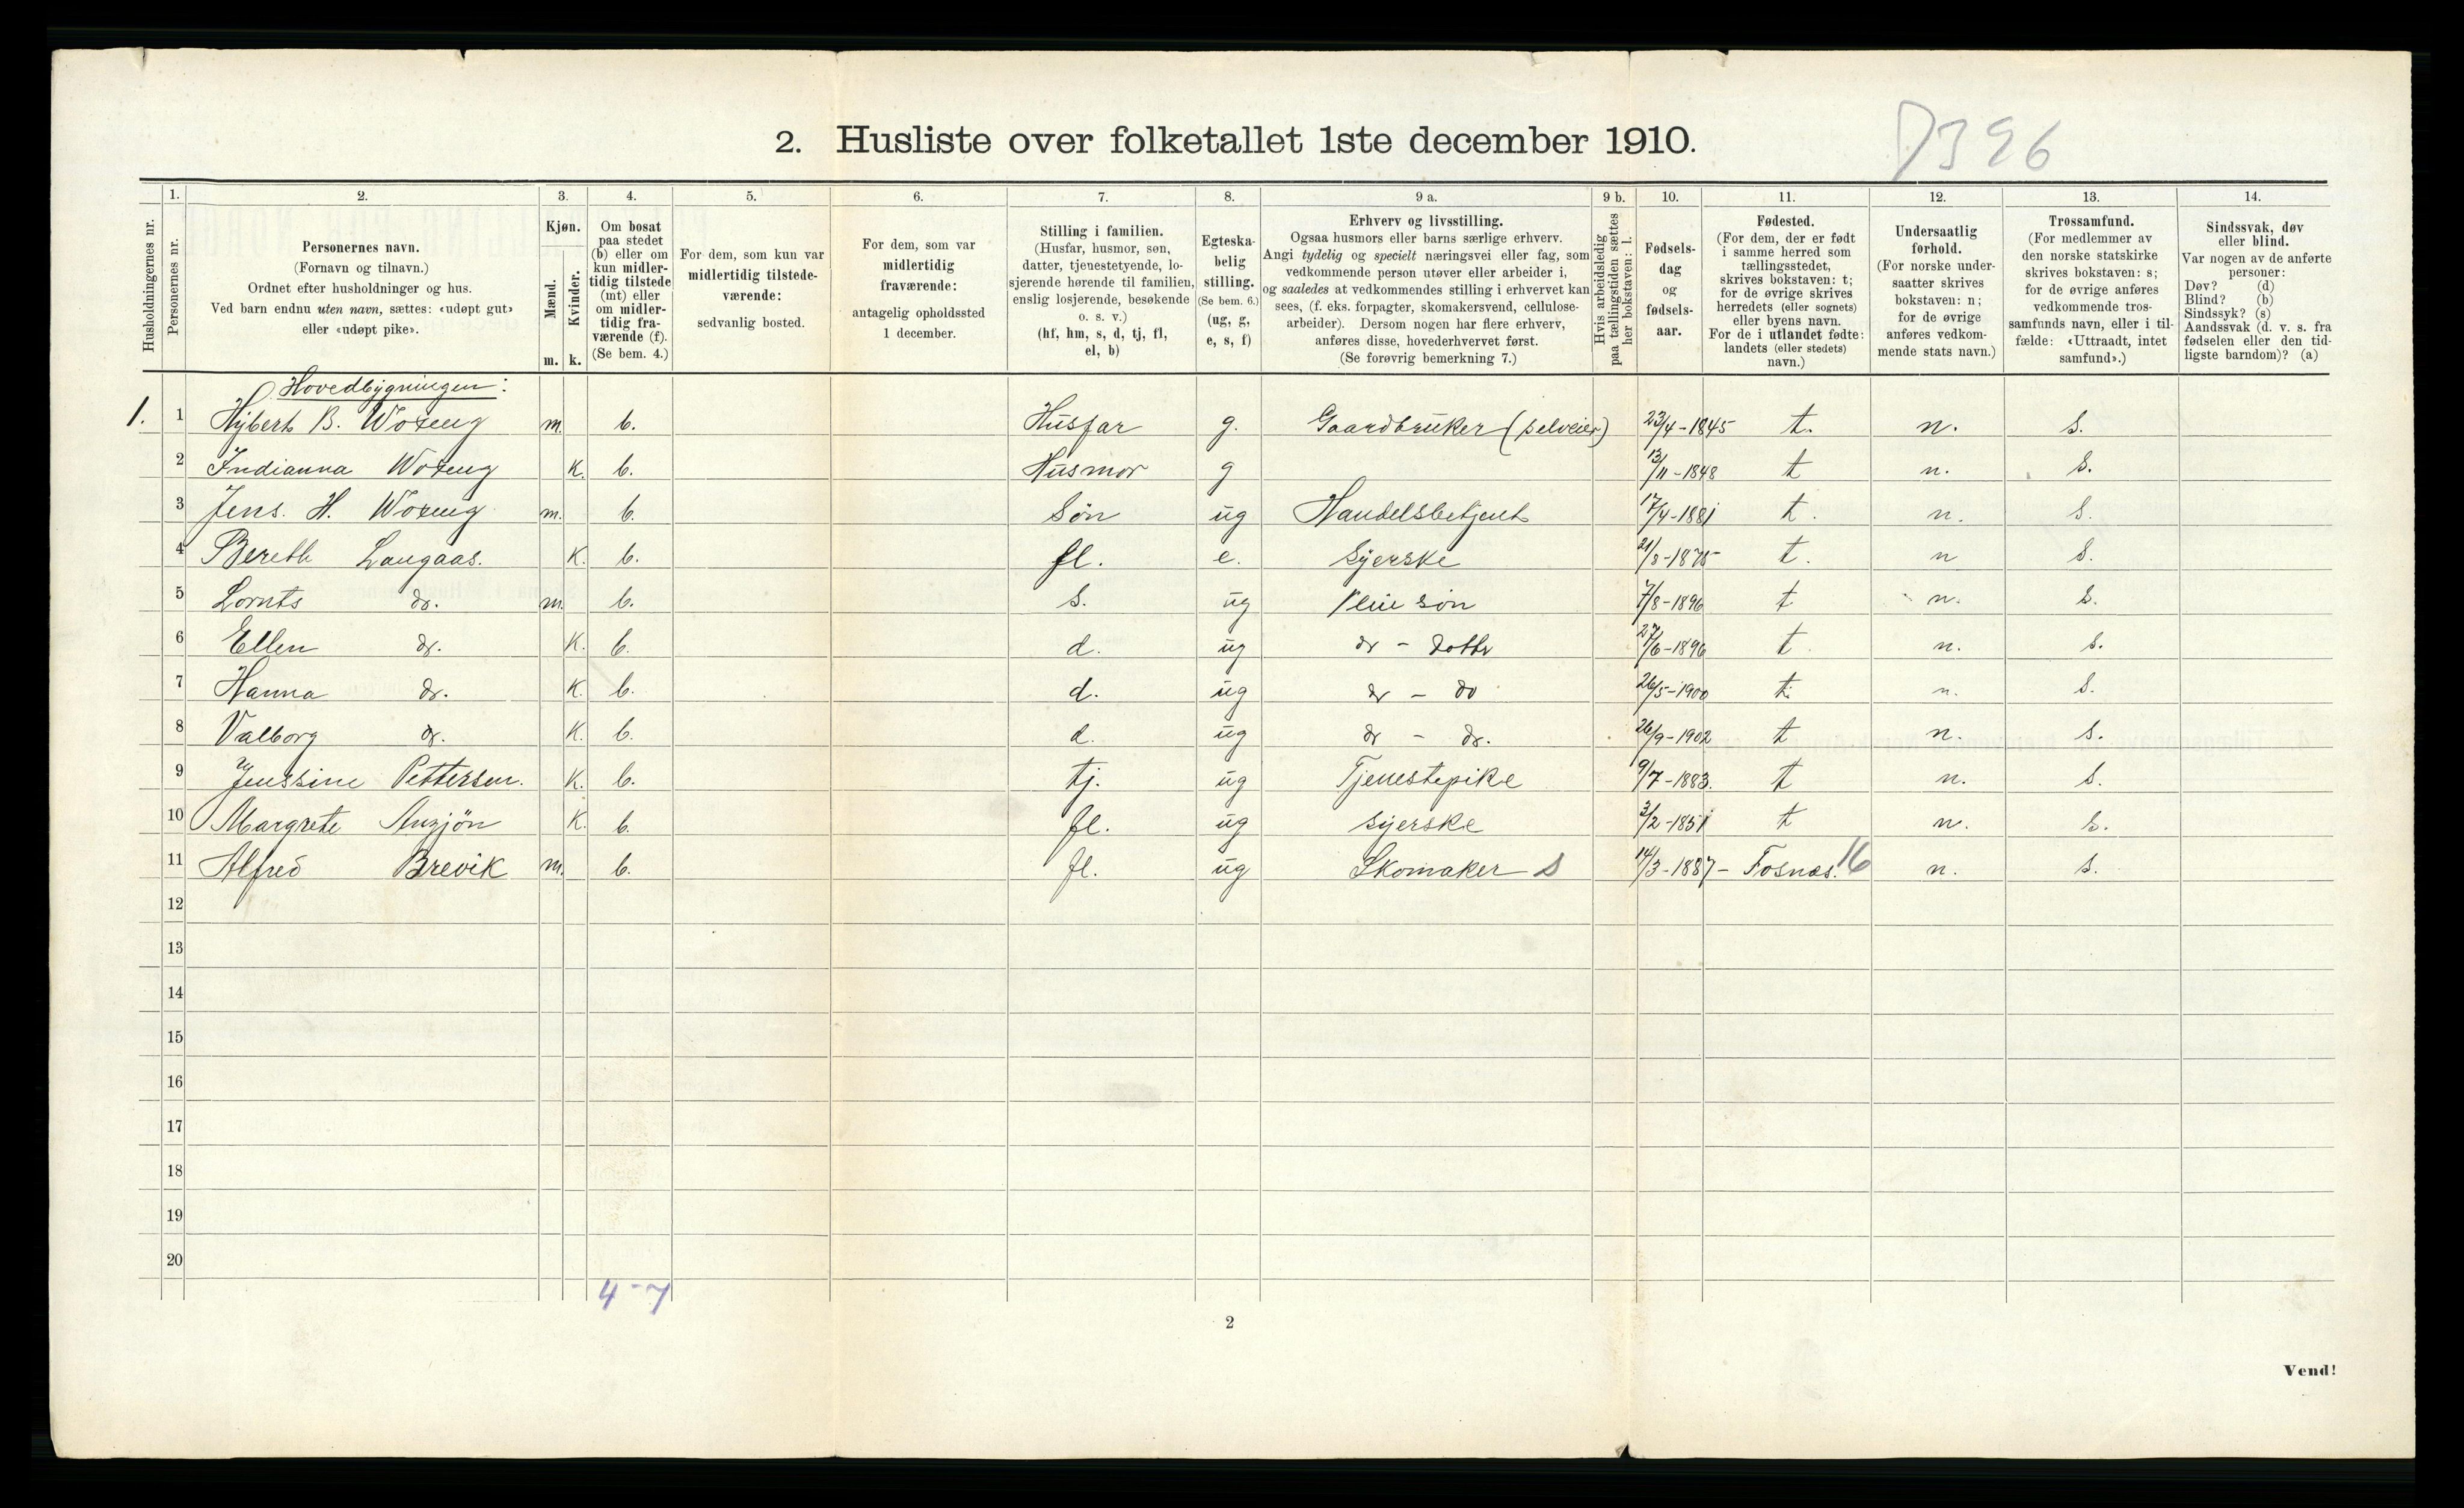 2. Husliste over folketallet 1ste december 1910.
D396
Husholdningernes nr.
1.
Personernes nr.
2.
Personernes navn.
(Fornavn og tilnavn.)
Ordnet efter husholdninger og hus.
Ved barn endnu uten navn, sættes: «udøpt gut»
eller «udøpt pike».
3.
Kjøn.
Mænd.
Kvinder.
m. k.
4.
Om bosat
paa stedet
(b) eller om
kun midler-
tidig tilstede
(mt) eller
om midler-
tidig fra-
værende (f).
(Se bem. 4.)
5.
For dem, som kun var
midlertidig tilstede-
værende:
sedvanlig bosted.
6.
For dem, som var
midlertidig
fraværende:
antagelig opholdssted
1 december.
7.
Stilling i familien.
(Husfar, husmor, søn,
datter, tjenestetyende, lo-
sjerende hørende til familien,
enslig losjerende, besøkende
o. s. v.)
(hf, hm, s, d, tj, fl,
el, b)
8.
Egteska-
belig
stilling.
(Se bem. 6.)
(ug, g,
e, s, f)
9 a.
Erhverv og livsstilling.
Ogsaa husmors eller barns særlige erhverv.
Angi tydelig og specielt næringsvei eller fag, som
vedkommende person utøver eller arbeider i,
og saaledes at vedkommendes stilling i erhvervet kan
sees, (f. eks. forpagter, skomakersvend, cellulose-
arbeider). Dersom nogen har flere erhverv,
anføres disse, hovederhvervet først.
(Se forøvrig bemerkning 7.)
9 b.
Hvis arbeidsledig
paa tællingstiden sættes
her bokstaven: l.
10.
Fødsels-
dag
og
fødsels-
aar.
11.
Fødested.
(For dem, der er født
i samme herred som
tællingsstedet,
skrives bokstaven: t;
for de øvrige skrives
herredets (eller sognets)
eller byens navn.
For de i utlandet fødte:
landets (eller stedets)
navn.)
12.
Undersaatlig
forhold.
(For norske under-
saatter skrives
bokstaven: n;
for de øvrige
anføres vedkom-
mende stats navn.)
13.
Trossamfund.
(For medlemmer av
den norske statskirke
skrives bokstaven: s;
for de øvrige anføres
vedkommende tros-
samfunds navn, eller i til-
fælde: «Uttraadt, intet
samfund».)
14.
Sindssvak, døv
eller blind.
Var nogen av de anførte
personer:
Døv? (d)
Blind? (b)
Sindssyk? (s)
Aandssvak (d. v. s. fra
fødselen eller den tid-
ligste barndom)? (a)
Hovedbygningen:
1. 1 Hybert B. Woxeng m. b. Husfar g. Gaardbruker (selveier) 23/4-1845 t. n. s.
2 Indianna Woxeng K. b. Husmor g 13/11-1848 t n. s.
3 Jens. H. Woxeng m. b. Søn ug Handelsbetjent 17/4-1881 t. n. s.
4 Bereth Langaas. K. b. fl. e. Syerske 21/8-1875 t. n s.
5 Lornts do. m. b. s. ug søn 7/8-1896 t n. s.
6 Ellen do. K. b. d. ug do - dotter 27/6-1896 t. n. s.
7 Hanna do. K. b. d. ug do - do 26/5-1900 t. n. s.
8 Valborg do. K. b. d. ug do - do. 26/9-1902 t n. s.
9 Jenssine Pettersen. K. b. tj. ug Tjenestepike 9/7-1883. t n. s.
10 Margrete K. b. fl. ug syerske 3/2-1851 t n. s.
11 Alfred Brevik m. b. fl. ug Skomaker s 14/3-1887- Fosnæs. 16 n. s.
12
13
14
15
16
17
18
19
20
4-7
2
Vend!